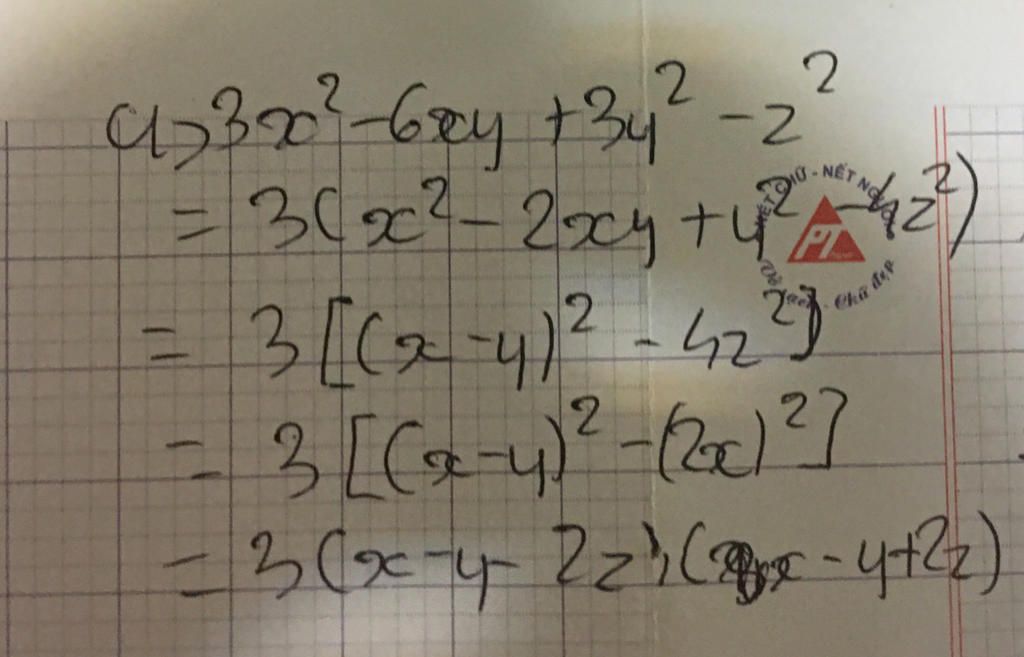 a> 3x² - 6xy + 3y² - z²
= 3(x² - 2xy + y² - 4z²)
= 3[(x - y)² - 4z²]
= 3[(x - y)² - (2x)²]
= 3(x - y - 2z).(x - y + 2z)
NÉT CHỮ - NẾT NGƯỜI
PT
Chữ đẹp